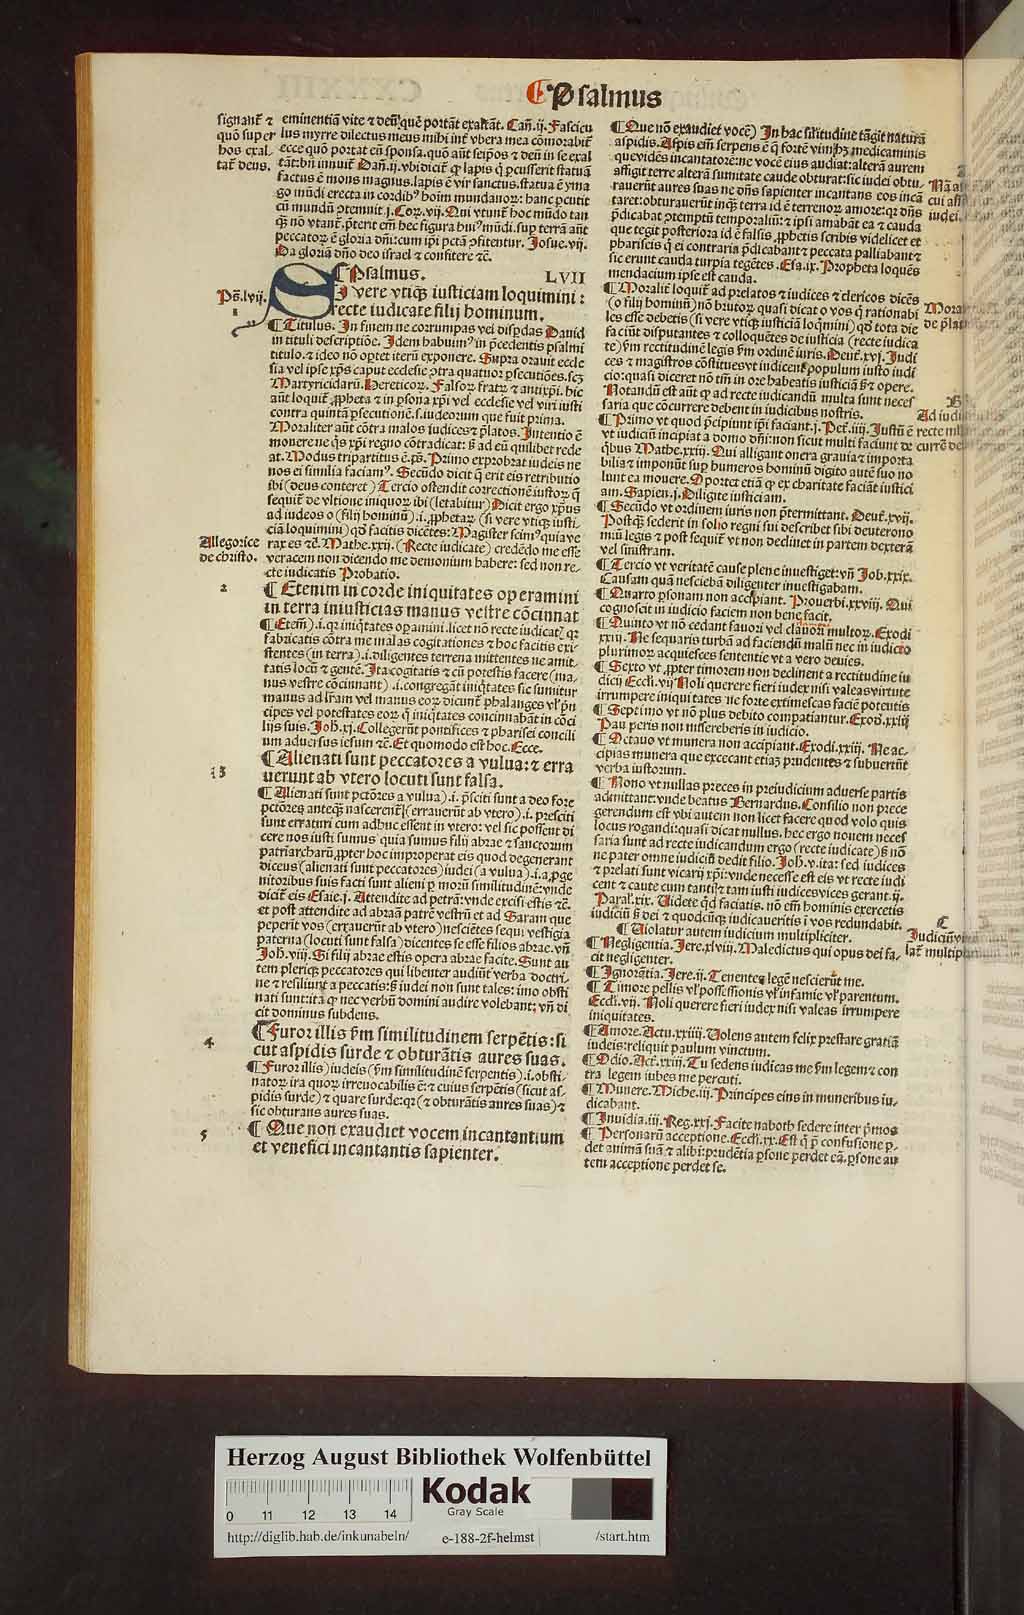 ¶ Psalmus
signant̃ ⁊
quõ super
hos exal-
tat̃ deus.
eminentiã vite ⁊ deũ quẽ portãt exaltãt. Cañ.ij. Fascicu
lus myrre dilectus meus mihi int̃ vbera mea cõmorabit̃
ecce quõ portat eũ sponsa. quõ aũt seip̃os ⁊ deũ in se exal
tãt: bñ innuit̃ Dañ.ij. vbi dicit̃ ꝙ lapis q̃ ꝑcusserit statuã
factus ẽ mons magnus. lapis ẽ vir sanctus. statua ẽ yma
go mũdi erecta in cordibꝰ hoĩm mundanoꝝ: hanc ꝑcutit
cũ mundũ ꝯtemnit. j. Coꝝ.vij. Qui vtunt̃ hoc mũdo tan
q̃ nõ vtant̃. p̃terit em̃ hec figura huiꝰ mũdi. sup terrã aũt
peccatoꝝ ẽ gloria dñi: cum ip̃i pctã ꝯfitentur. Josue.vij.
Da gloriã dño deo israel ⁊ confitere ⁊c̃.
¶ Psalmus. LVII
Pš.lvij.
1
SI vere vtiqꝫ iusticiam loquimini:
recte iudicate filij hominum.
¶ Titulus. In finem ne corrumpas vel disp̃das Dauid
in tituli descriptiõe. Idem habuimꝰ in p̃cedentis psalmi
titulo. ⁊ ideo nõ oꝑtet iterũ exponere. Supra orauit eccle
sia vel ipse xp̃s caput ecclesie ꝯtra quatuor ꝑsecutiões. scꝫ
Martyricidarũ. Hereticoꝝ. Falsoꝝ fratꝝ ⁊ antixp̃i. hic
aũt loquit̃ ꝓpheta ⁊ in ꝑsona xp̃i vel ecclesie vel viri iusti
contra quintã ꝑsecutionẽ. s. iudeorum que fuit prima.
Moraliter aũt cõtra malos iudices ⁊ p̃latos. Intentio ẽ
monere ne q̃s xp̃i regno cõtradicat: ß ad eũ quilibet rede
at. Modus tripartitus ẽ. pš. Primo exprobrat iudeis ne
nos ei similia faciamꝰ. Secũdo dicit q̃ erit eis retributio
ibi (deus conteret) Tercio ostendit correctionẽ iustoꝝ q̃
sequit̃ de vltione iniquoꝝ ibi (letabitur) Dicit ergo xp̃us
ad iudeos o (filij hominũ) .i. ꝓphetaꝝ (si vere vtiqꝫ iusti-
ciã loquimini) qđ facitis dicẽtes: Magister scimꝰ quia ve
rax es ⁊c̃. Mathe.xxij. (Recte iudicate) credẽdo me esse
veracem non dicendo me demonium habere: sed non re-
cte iudicatis Probatio.
Allegorice
de christo.
2
¶ Etenim in corde iniquitates operamini
in terra iniusticias manus vestre cõcinnat
¶ (Etem̃) .i. qꝛ iniq̃tates opamini. licet nõ recte iudicatꝭ qꝛ
fabricatis cõtra me malas cogitationes ⁊ hoc facitis exi-
stentes (in terra) .i. diligentes terrena mittentes ne amit-
tatis locũ ⁊ gentẽ. Ita cogitatis ⁊ cũ potestis facere (ma-
nus vestre cõcinnant) .i. congregãt iniq̃tates sic sumitur
manus ad lr̃am vel manus eoꝝ dicunt̃ phalanges vl̃ p̃n
cipes vel potestates eoꝝ q̃ iniq̃tates concinnabãt in cõci
lijs suis. Joh̃.xj. Collegerũt pontifices ⁊ pharisei concili
um aduersus iesum ⁊c̃. Et quomodo est hoc. Ecce.
3
¶ Alienati sunt peccatores a vulua: ⁊ erra
uerunt ab vtero locuti sunt falsa.
¶ (Alienati sunt pctõres a vulua) .i. p̃sciti sunt a deo fore
pctõres anteqꝫ nascerent̃ (errauerũt ab vtero) .i. presciti
sunt erraturi cum adhuc essent in vtero: vel sic possent di
cere nos iusti sumus quia sumus filij abrae ⁊ sanctorum
patriarcharũ. ꝓpter hoc improperat eis quod degenerant
dicens (alienati sunt peccatores) iudei (a vulua) .i. a ꝓge
nitoribus suis facti sunt alieni ꝑ morũ similitudinẽ: vnde
dicit̃ eis Esaie.j. Attendite ad petrã: vnde excisi estis ⁊c̃.
et post attendite ad abraã patrẽ vestrũ et ad Saram que
peperit vos (errauerũt ab vtero) nesciẽtes sequi vestigia
paterna (locuti sunt falsa) dicentes se esse filios abrae. vñ
Joh̃.viij. Si filij abrae estis opera abrae facite. Sunt au
tem pleriqꝫ peccatores qui libenter audiũt verba doctri-
ne ⁊ resiliunt a peccatis: ß iudei non sunt tales: imo obsti
nati sunt: ita ꝙ nec verbũ domini audire volebant: vñ di
cit dominus subdens.
4
¶ Furor illis ẜm similitudinem serpẽtis: si
cut aspidis surde ⁊ obturãtis aures suas.
¶ (Furor illis) iudeis (ẜm similitudinẽ serpentis) .i. obsti-
natoꝝ ira quoꝝ irreuocabilis ẽ: ⁊ cuius serpẽtis (sicut as-
pidis surde) ⁊ quare surde: qꝛ (⁊ obturãtis aures suas) ⁊
sic obturans aures suas.
5
¶ Que non exaudiet vocem incantantium
et venefici incantantis sapienter.
¶ (Que nõ exaudiet vocẽ) In hac sil̃itudine tãgit naturã
aspidis. Aspis em̃ serpens ẽ q̃ forte vim hꝫ medicaminis
que vidẽs incantatorẽ: ne vocẽ eius audiat: alterã aurem
affigit terre alterã sumitate caude obturat: sic iudei obtu-
rauerũt aures suas ne dñs sapienter incantans eos incã
taret: obturauerũt inqꝫ terra id ẽ terrenoꝝ amore: qꝛ dñs
p̃dicabat ꝯtemptũ temporaliũ: ⁊ ipsi amabãt ea ⁊ cauda
que tegit posteriora id ẽ falsis ꝓphetis scribis videlicet et
phariseis q̃ ei contraria p̃dicabant ⁊ peccata palliabant ⁊
sic erunt cauda turpia tegẽtes. Esa.ix. Propheta loquẽs
mendacium ipse est cauda.
¶ Moralit̃ loquit̃ ad prelatos ⁊ iudices ⁊ clericos dicẽs
(o filij hominũ) nõ brutoꝝ quasi dicat o vos q̃ rationabi
les esse debetis (si vere vtiqꝫ iusticiã loq̃mini) qđ tota die
faciũt disputantes ⁊ colloquẽtes de iusticia (recte iudica
te) ẜm rectitudinẽ legis ẜm ordinẽ iuris. Deut̃.xvj. Judi
ces ⁊ magistros cõstitues vt iudicent populum iusto iudi
cio: quasi diceret nõ tm̃ in ore habeatis iusticiã ß ⁊ opere.
Notandũ est aũt ꝙ ad recte iudicandũ multa sunt neces
saria que cõcurrere debent in iudicibus nostris.
¶ Primo vt quod p̃cipiunt ip̃i faciant. j. Pet̃.iiij. Justũ ẽ
vt iudiciũ incipiat a domo dñi: non sicut multi faciunt de
q̃bus Mathe.xxiij. Qui alligant onera grauia ⁊ importa
bilia ⁊ imponũt sup humeros hominũ digito autẽ suo no
lunt ea mouere. Oportet etiã ꝙ ex charitate faciãt iustici
am. Sapien.j. Diligite iusticiam.
¶ Secũdo vt ordinem iuris non p̃termittant. Deut̃.xvij.
Postqꝫ sederit in solio regni sui describet sibi deuterono
miũ legis ⁊ post sequit̃ vt non declinet in partem dexterã
vel sinistram.
¶ Tercio vt veritatẽ cause plene inuestiget: vñ Job.xxix.
Causam quã nesciebã diligenter inuestigabam.
¶ Quarto ꝑsonam non accipiant. Prouerbi.xxviij. Qui
cognoscit in iudicio faciem non bene facit.
¶ Quinto vt nõ cedant fauori vel clamori multoꝝ. Exodi
xxiij. Ne sequaris turbã ad faciendũ malũ nec in iudicio
plurimoꝝ acquiesces sententie vt a vero deuies.
¶ Sexto vt ꝓpter timorem non declinent a rectitudine iu
dicij Eccl̃i.vij Noli querere fieri iudex nisi valeas virtute
irrumpere iniquitates ne forte extimescas faciẽ potentis
¶ Septimo vt nõ plus debito compatiantur. Exod̃.xxiij
Pauperis non misereberis in iudicio.
¶ Octauo vt munera non accipiant. Exodi.xxiij. Ne ac-
cipias munera que excecant etiaꝫ prudentes ⁊ subuertũt
verba iustorum.
¶ Nono vt nullas preces in preiudicium aduerse partis
admittant: vnde beatus Bernardus. Consilio non prece
gerendum est vbi autem non licet facere quod volo quis
locus rogandi: quasi dicat nullus. hec ergo nouem neces
saria sunt ad recte iudicandum ergo (recte iudicate) ß nõ
ne pater omne iudiciũ dedit filio. Joh̃.v. ita: sed iudices
⁊ prelati sunt vicarij xp̃i: vnde necesse est eis vt recte iudi
cent ⁊ caute cum tanti ⁊ tam iusti iudices vices gerant. ij.
Paral̃.xix. Uidete q̃d faciatis. nõ em̃ hominis exercetis
iudiciũ ß dei ⁊ quodcũqꝫ iudicaueritis ĩ vos redundabit.
¶ Uiolatur autem iudicium multipliciter.
¶ Negligentia. Jere.xlviij. Maledictus qui opus dei fa-
cit negligenter.
¶ Ignorãtia. Jere.ij. Tenentes legẽ nescierũt me.
¶ Timore pellis vl̃ possessionis vl̃ infamie vl̃ parentum.
Eccl̃i.vij. Noli querere fieri iudex nisi valeas irrumpere
iniquitates.
¶ Amore. Actu.xxiiij. Uolens autem felix prestare gratiã
iudeis: reliquit paulum vinctum.
¶ Odio. Act̃.xxiij. Tu sedens iudicas me ẜm legem ⁊ con
tra legem iubes me percuti.
¶ Munere. Miche.iij. Principes eius in muneribus iu-
dicabant.
¶ Inuidia. iij. Reg.xxj. Facite naboth sedere inter p̃mos
¶ Personarũ acceptione. Eccl̃i.xx. Est q̃ p̃ confusione ꝑ-
det animã suã ⁊ alibi: prudẽtia ꝑsone perdet eã. ꝑsone au
tem acceptione perdet se.
cui
iudei.
de p̃lat
Ad iudi
recte
Judiciũ
lat̃ multip
Herzog August Bibliothek Wolfenbüttel
0 11 12 13 14
Kodak
Gray Scale
http://diglib.hab.de/inkunabeln/ e-188-2f-helmst /start.htm